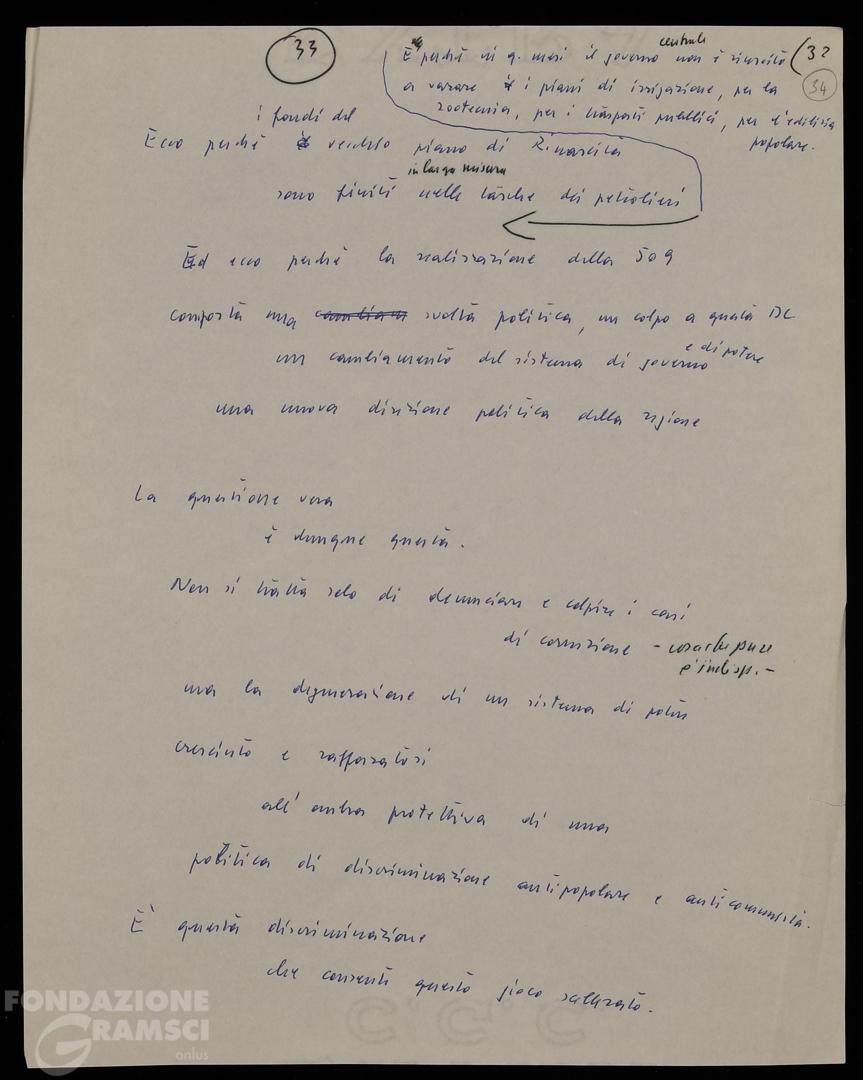 33
32
34
E perché in q. mesi il governo centrale non è riuscito
a varare i piani di irrigazione, per la
zootecnia, per i trasporti pubblici, per l'edilizia
popolare.
i fondi del
Ecco perché vecchio piano di Rinascita
in larga misura
sono finiti nelle tasche dei petrolieri
Ed ecco perché la realizzazione della 509
comporta una svolta politica, un colpo a questa DC
un cambiamento del sistema di governo e di potere
una nuova direzione politica della regione
La questione vera
è dunque questa.
Non si tratta solo di denunciare e colpire i casi
di corruzione - cosa che pure
è indisp. -
ma la degenerazione di un sistema di potere
cresciuto e rafforzatosi
all'ombra protettiva di una
politica di discriminazione antipopolare e anticomunista.
E' questa discriminazione
che consente questo gioco
FONDAZIONE
GRAMSCI
onlus